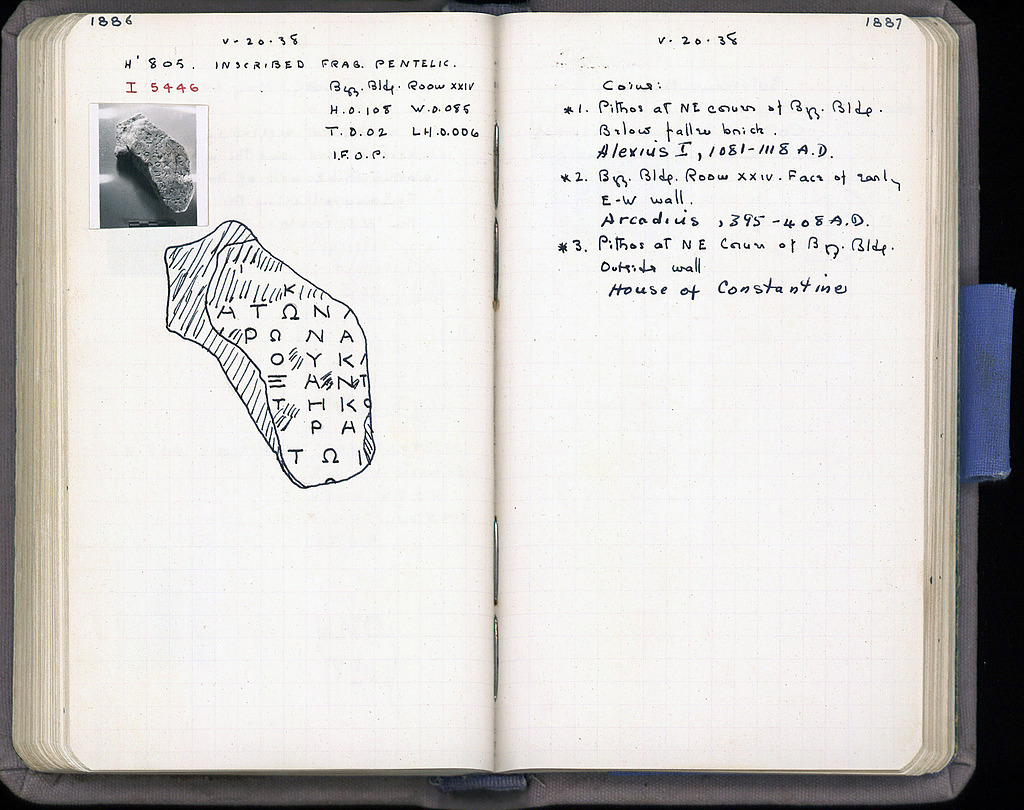 1886
V-20-38
H' 805. INSCRIBED FRAG. PENTELIC.
I 5446
Byz. Bldg. Room XXIV
H.0.108 W.0.085
T.0.02 LH.0.006
I.F.O.P.
Κ
ΑΤΩΝ
ΡΩΝΑ
ΟΥΚ
ΞΑΝΤ
ΤΗΚΟ
ΡΑ
ΤΩΙ
1887
V-20-38
Coins:
*1. Pithos at NE corner of Byz. Bldg.
Below fallen brick.
Alexius I, 1081-1118 A.D.
*2. Byz. Bldg. Room XXIV. Face of early
E-W wall.
Arcadius, 395-408 A.D.
*3. Pithos at NE Corner of Byz. Bldg.
Outside wall
House of Constantine